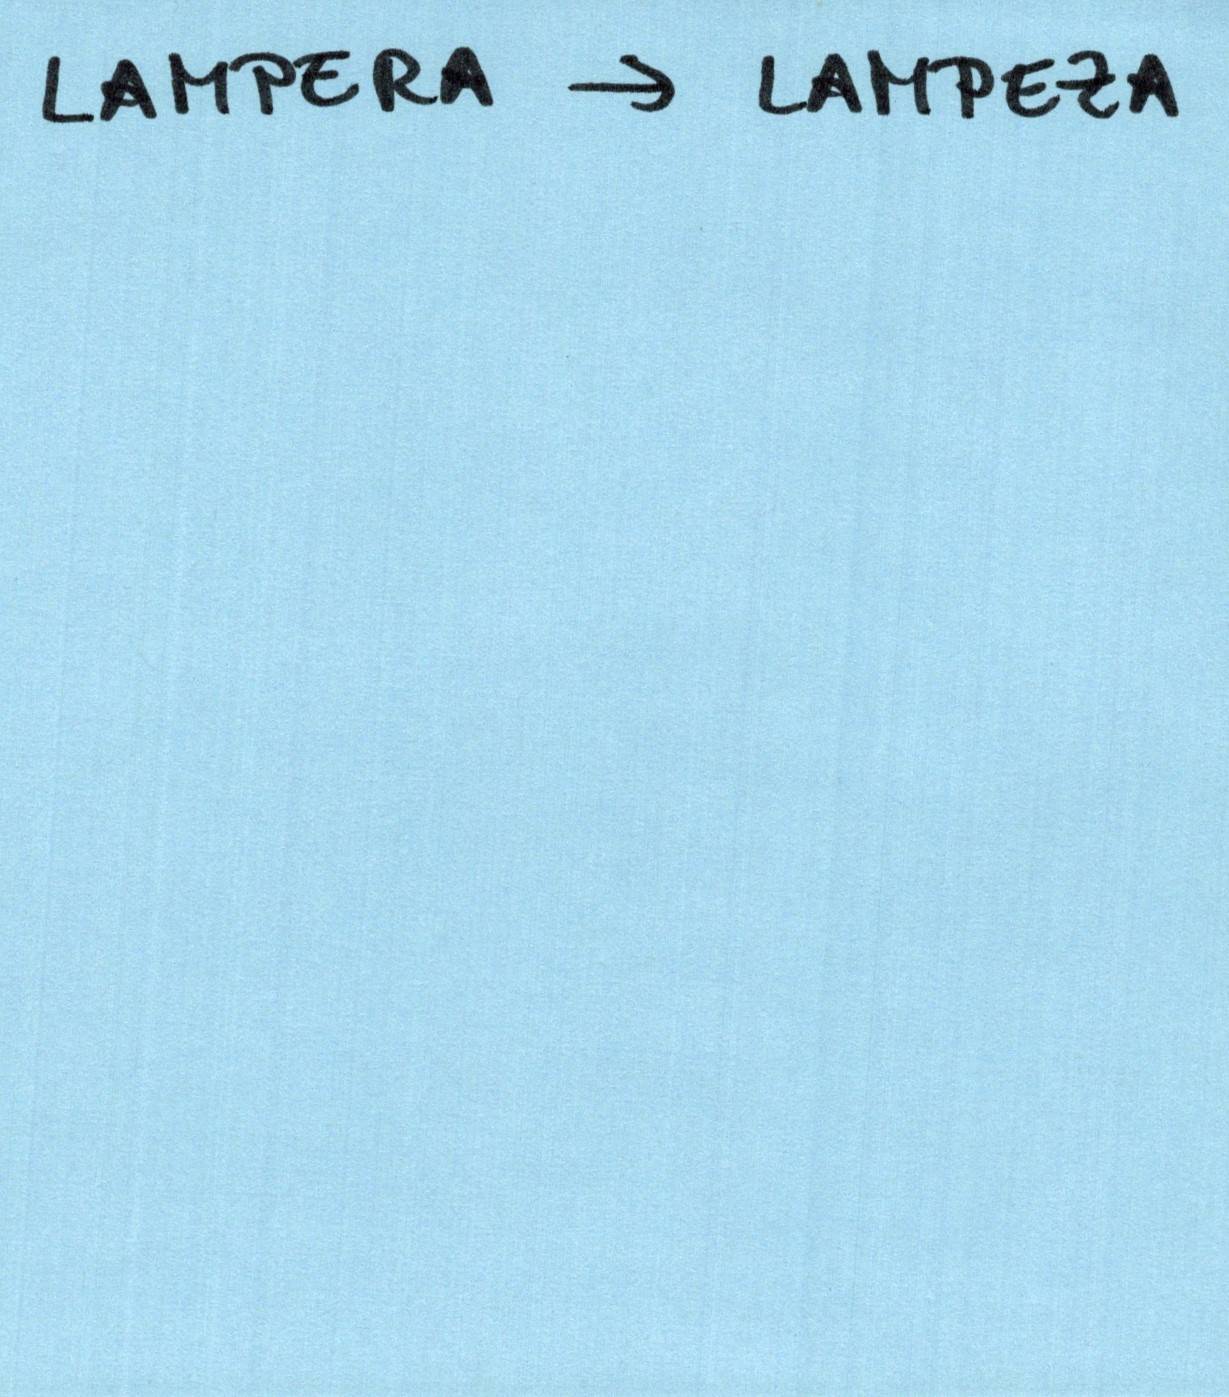 LAMPERA → LAMPEZA